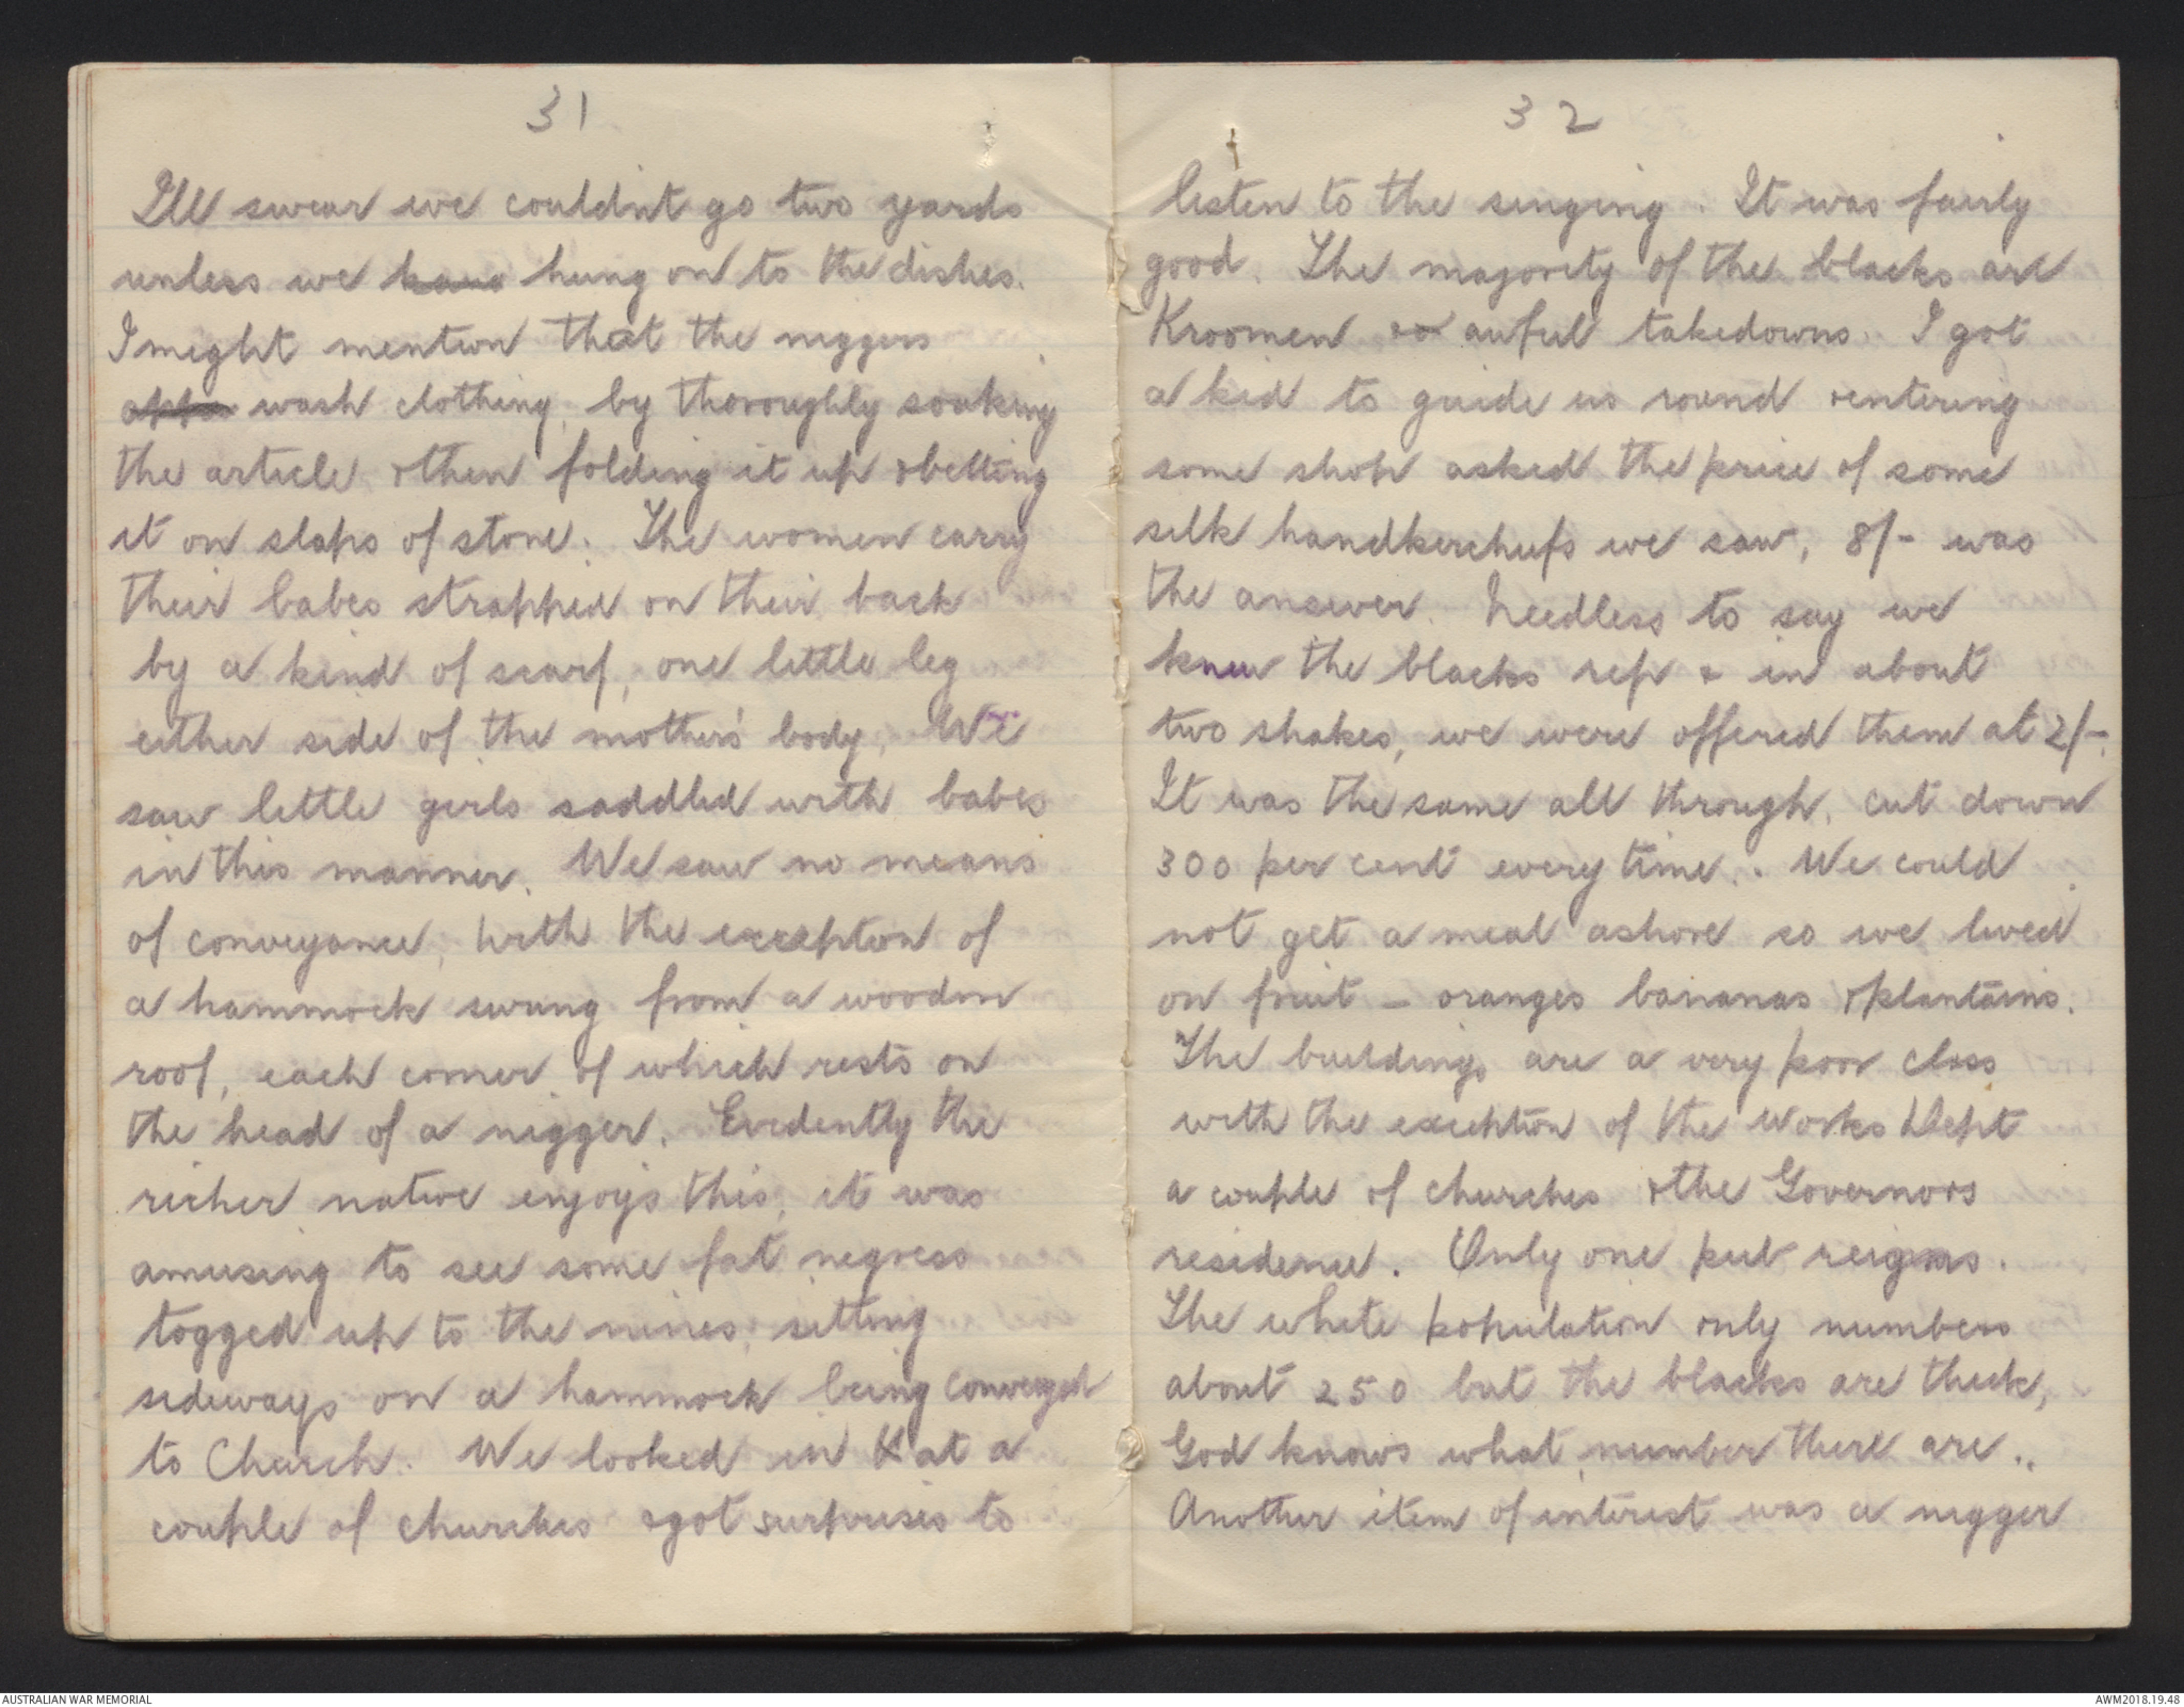 31
I'll swear we couldn't go two yards
unless we have hung on to the dishes.
I might mention that the niggers
wash clothing, by thoroughly soaking
the article, & then folding it up & belting
it on slaps of stone. The women carry
their babes strapped on their back
by a kind of scarf, one little leg
either side of the mother's body. We
saw little girls saddled with babes
in this manner. We saw no means
of conveyance, with the exception of
a hammock swung from a wooden
roof, each corner of which rests on
the head of a nigger. Evidently the
richer native enjoys this, it was
amusing to see some fat negress
togged up to the nines, sitting
sideways on a hammock being conveyed
to Church. We looked in at a
couple of churches & got surprises to
32
listen to the singing. It was fairly
good. The majority of the blacks are
Kroomen & awful takedowns. I got
a kid to guide us round & entering
some shop asked the price of some
silk handkerchiefs we saw, 8/- was
the answer. Needless to say we
knew the blacks rep & in about
two shakes, we were offered them at 2/-.
It was the same all through, cut down
300 per cent every time. We could
not get a meal ashore so we lived
on fruit - oranges bananas & plantains.
The buildings are a very poor class
with the exception of the Works Dept
a couple of churches & the Governors
residence. Only one pub reigns.
The white population only numbers
about 250 but the blacks are thick,
God knows what number there are..
Another item of interest was a nigger
AUSTRALIAN WAR MEMORIAL
AWM2018.19.48